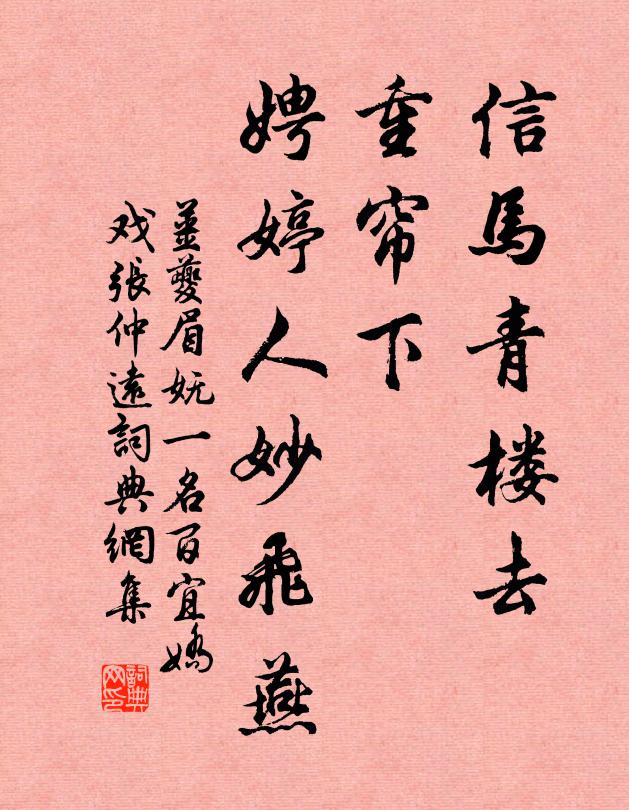 信馬青楼去
重帘下
娉婷人妙飛燕
姜夔眉妩一名百宜嬌
戏張仲遠詞典網集
詞典网印